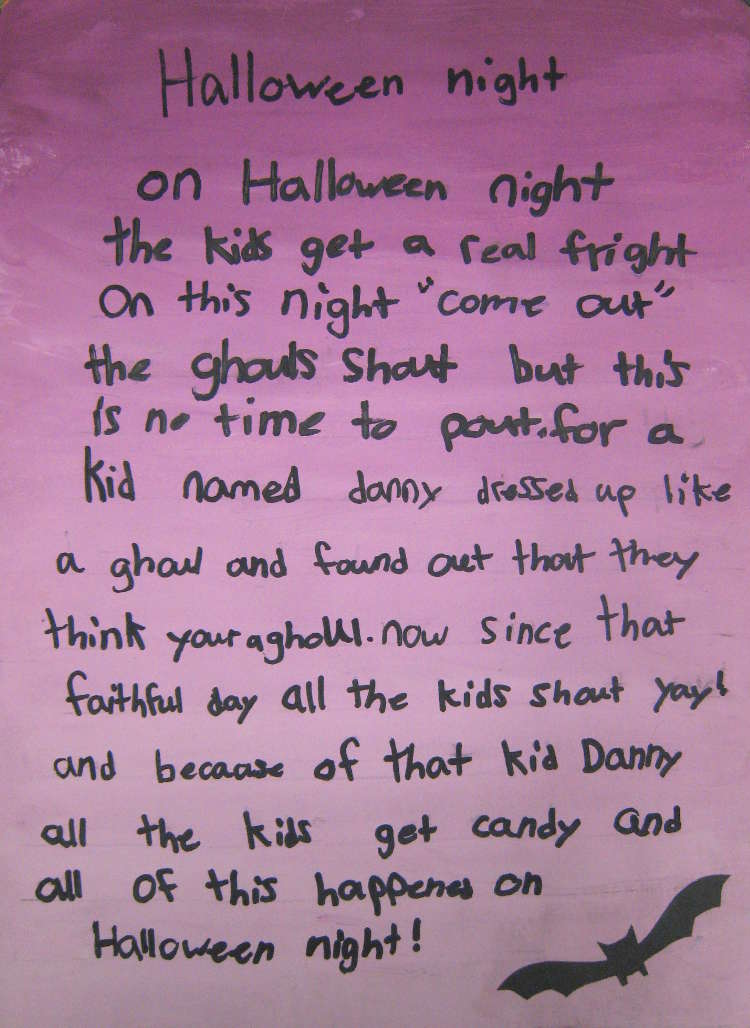 Halloween night
on Halloween night
the kids get a real fright
On this night "come out"
the ghouls shout but this
is no time to pout. for a
kid named danny dressed up like
a ghoul and found out that they
think your a ghoul. now since that
faithful day all the kids shout yay!
and because of that kid Danny
all the kids get candy and
all of this happenes on
Halloween night!